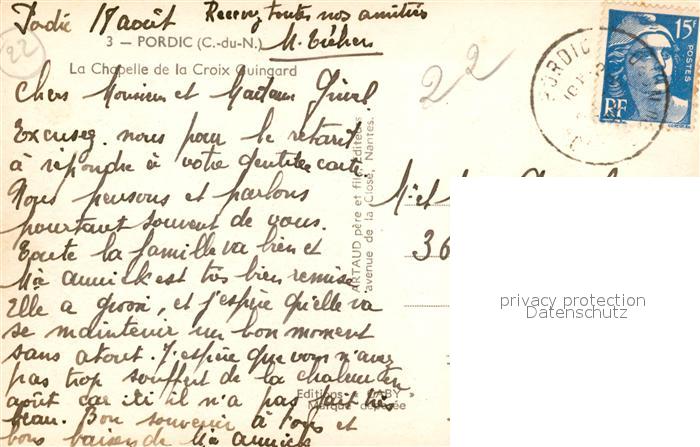 Pordic 18 août Recevez toutes nos amitiés
3 — PORDIC (C.-du-N.)
La Chapelle de la Croix Guingard
Chers Monsieur et Madame
Excusez-nous pour le retard
à répondre à votre gentille carte.
Nous pensons et parlons
pourtant souvent de vous.
Toute la famille va bien et
Annick est très bien remise
Elle a grossi, et j'espère qu'elle va
se maintenir un bon moment
sans atout. J'espère que vous n'avez
pas trop souffert de la chaleur en
août car ici il n'a pas fait très
beau. Bon souvenir à tous et
bons baisers de Annick
ARTAUD père et fils, Éditeurs
avenue de la Close, Nantes.
Editions "GABY"
Marque déposée
22
22
15F
POSTES
RF
PORDIC
M. et
36
privacy protection
Datenschutz